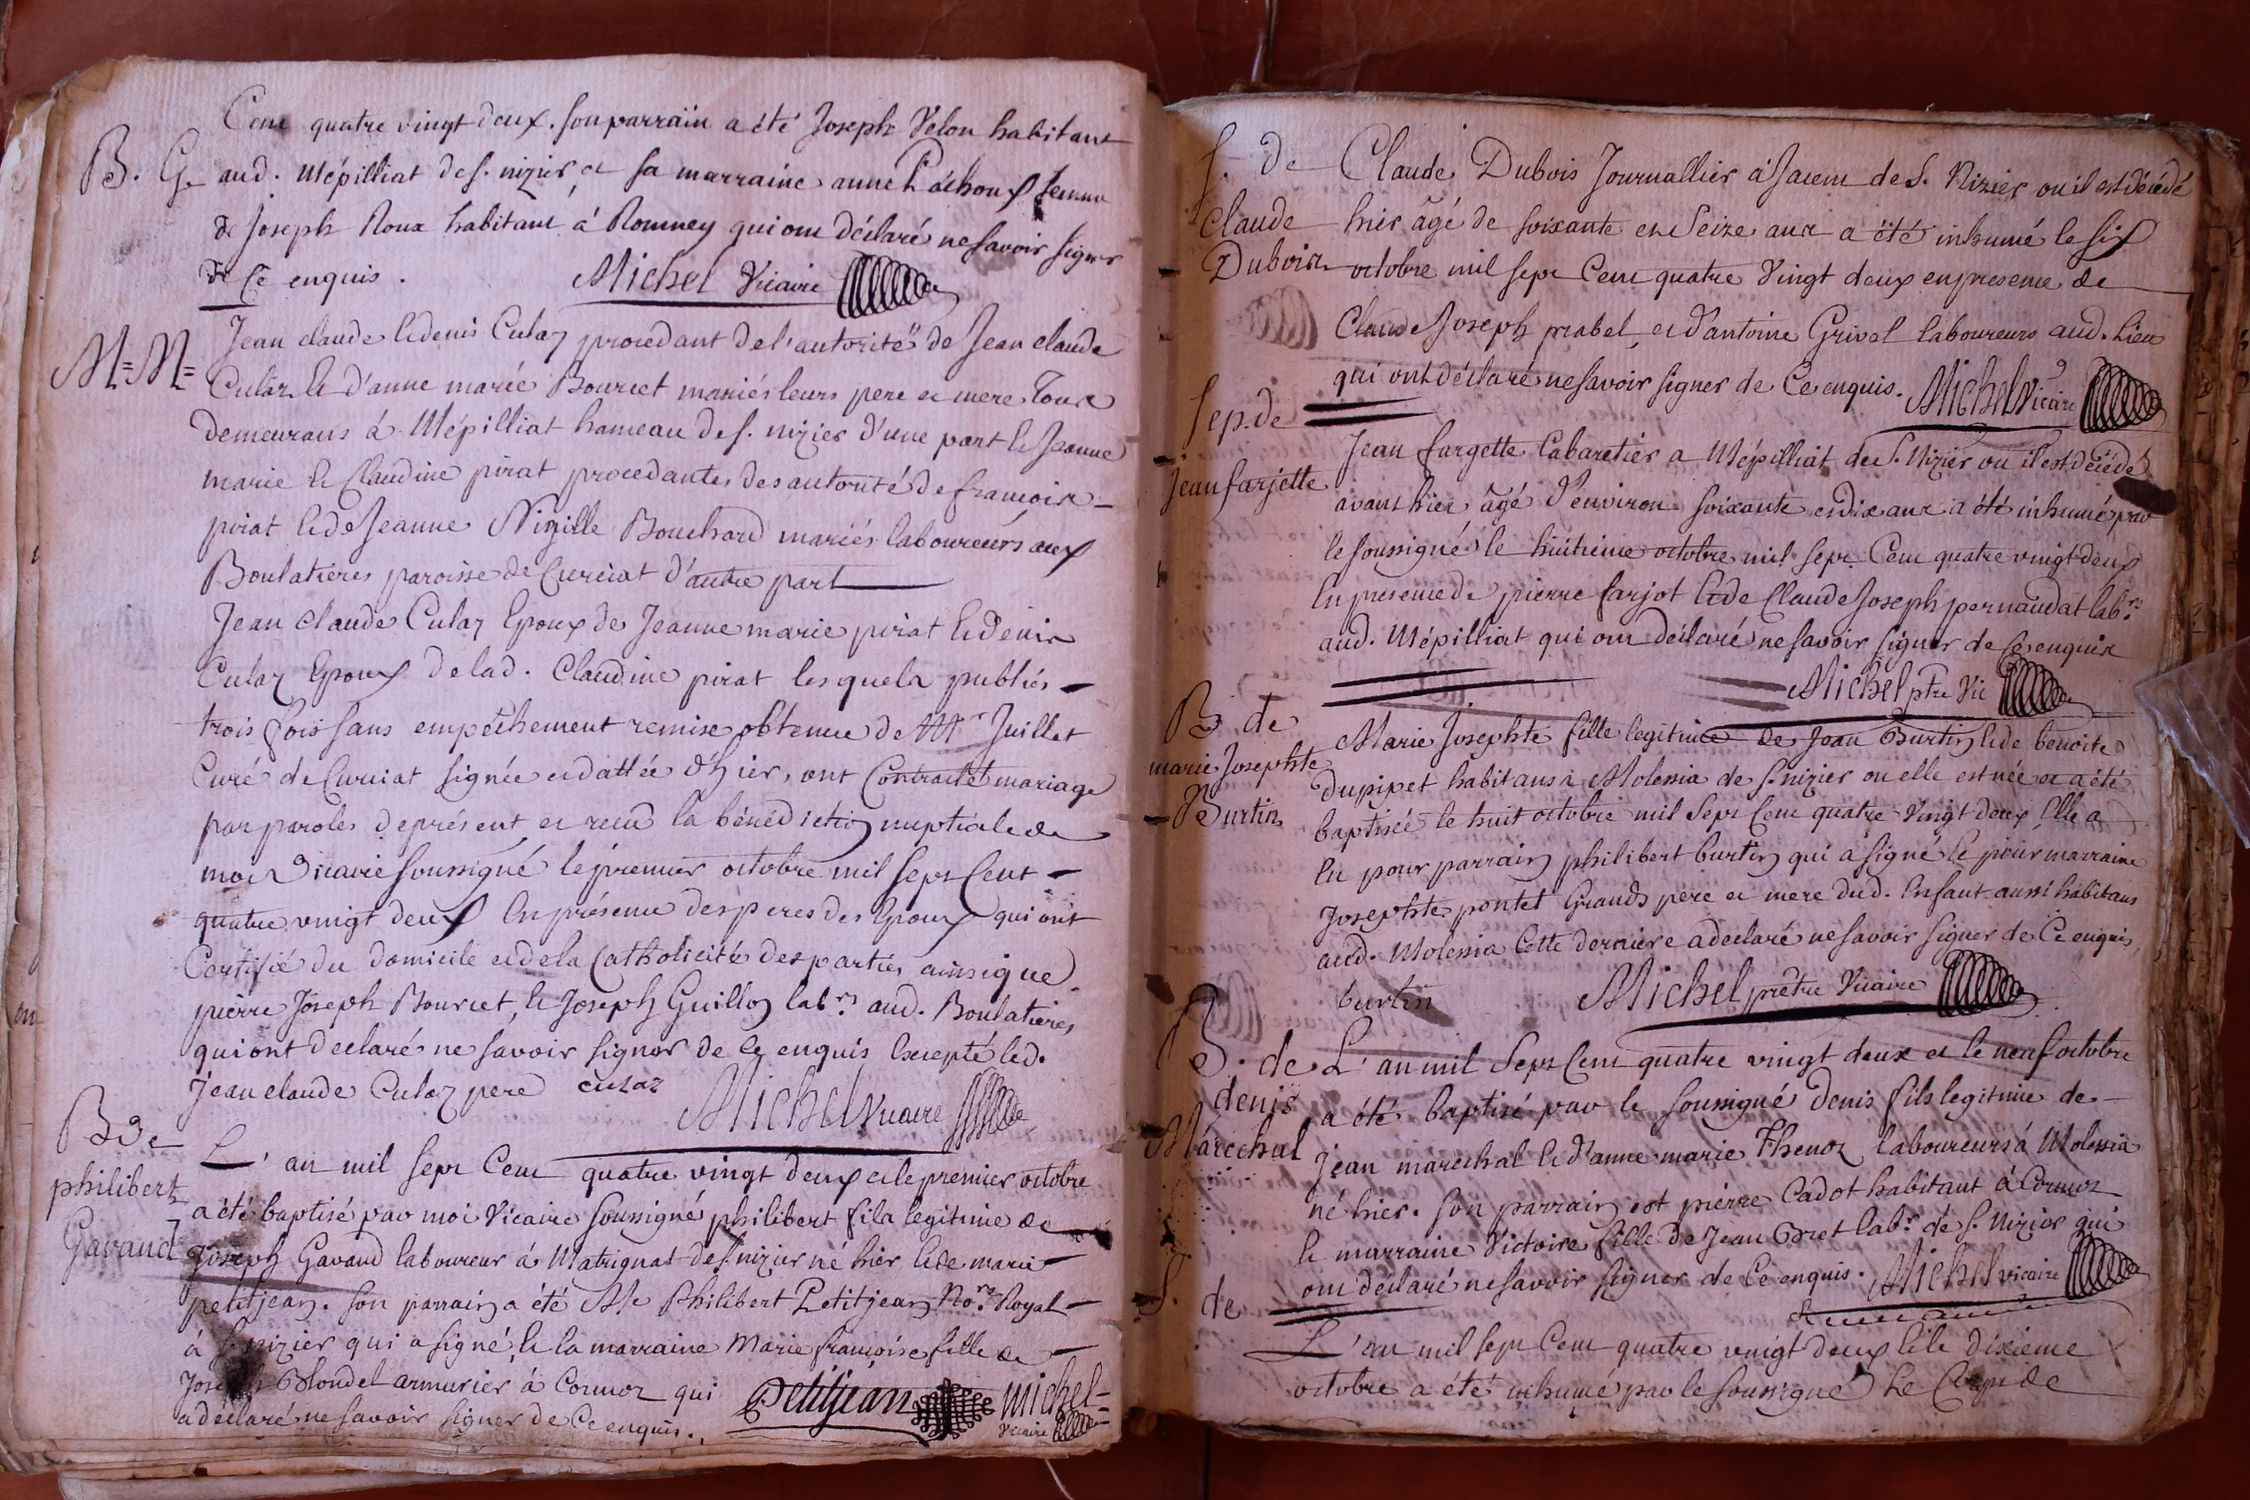 Cent quatre vingt deux. son parrain a été Joseph Velon habitant
B. G. aud. Mépilliat de s. nizier et sa marraine anne Pachoux femme
de Joseph Roux habitant à Romney qui ont déclaré ne savoir signer
de Ce enquis. Michel Vicaire
M = M = Jean claude & denis Culaz procedant de l'autorité de Jean claude
Culaz & d'anne marie Bourcet mariés leurs pere et mere Tous
demeurans à Mépilliat hameau de s. nizier d'une part & Jeanne
marie & Claudine pirat procedantes des autorité de francois
pirat & de Jeanne Bouchard mariés laboureurs aux
Boulatieres paroisse de Curciat d'autre part
Jean claude Culaz Epoux de Jeanne marie pirat & denis
Culaz Epoux de lad. Claudine pirat lesquels publiés
trois fois sans empêchement remise obtenue de Mr Juillet
Curé de Curciat signée et dattée d'hier, ont Contracté mariage
par paroles de présent et recu la bénédiction nuptiale de
moi Vicaire soussigné le premier octobre mil sept Cent
quatre vingt deux En présence des peres des Epoux qui ont
Certifié du domicile et de la Catholicité des parties ainsi que
pierre Joseph Bourcet, & Joseph Guillon labrs. aud. Boulatieres
qui ont declaré ne savoir signer de Ce enquis Excepté led.
Jean claude Culaz pere culaz Michel Vicaire
B de L'an mil sept Cent quatre vingt deux et le premier octobre
philibert a été baptisé par moi Vicaire soussigné philibert fils legitime de
Gavand Joseph Gavand laboureur à Matrignat de s. nizier né hier & de marie
petitjean. son parrain a été Me Philibert Petitjean Nore. Royal
à s. nizier qui a signé, & la marraine Marie francoise fille de
Joseph Blondel armurier à Cormoz qui
a déclaré ne savoir signer de Ce enquis. Petitjean Michel
Vicaire
S. de Claude Dubois Journallier à de S. Nizier ou il est décédé
Claude hier âgé de soixante et Seize ans a été inhumé le six
Dubois octobre mil sept Cent quatre Vingt deux en presence de
Claude Joseph mabel, et d'antoine Grivel laboureurs aud. Lieu
qui ont déclaré ne savoir signer de Ce enquis. Michel Vicaire
Sep. de
Jean fargette Cabaretier a Mépilliat de S. Nizier ou il est décédé
Jean farjette avant hier âgé d'environ soixante et dix ans a été inhumé par
le soussigné le huitieme octobre mil sept Cent quatre vingt deux
En presence de pierre farjot & de Claude Joseph pernaudat labrs.
aud. Mépilliat qui ont déclaré ne savoir signer de Ce enquis
Michel ptre Vic
B. de Marie Josephte fille legitime de Jean Burtin & de benoite
marie Josephte Dupipet habitans à Molessia de s. nizier ou elle est née et a été
Burtin baptisée le huit octobre mil Sept Cent quatre Vingt deux Elle a
Eu pour parrain philibert burtin qui a signé & pour marraine
Josephte pontet Grands pere et mere dud. Enfant aussi habitans
aud. Molessia Cette derniere a declaré ne savoir signer de Ce enquis,
burtin Michel prêtre Vicaire
B. de L'an mil Sept Cent quatre vingt deux et le neuf octobre
denis a été baptisé par le soussigné Denis fils legitime de
Maréchal jean mareschal & d'anne marie Thenoz laboureurs à Molessia
né hier. son parrain est pierre Cadot habitant à Cormoz
& marraine Victoire fille de Jean Bret labr. de S. Nizier qui
ont déclaré ne savoir signer de Ce enquis. Michel vicaire
S. de
L'an mil sept Cent quatre vingt deux & le dixieme
octobre a été inhumé par le soussigné Le Corps de